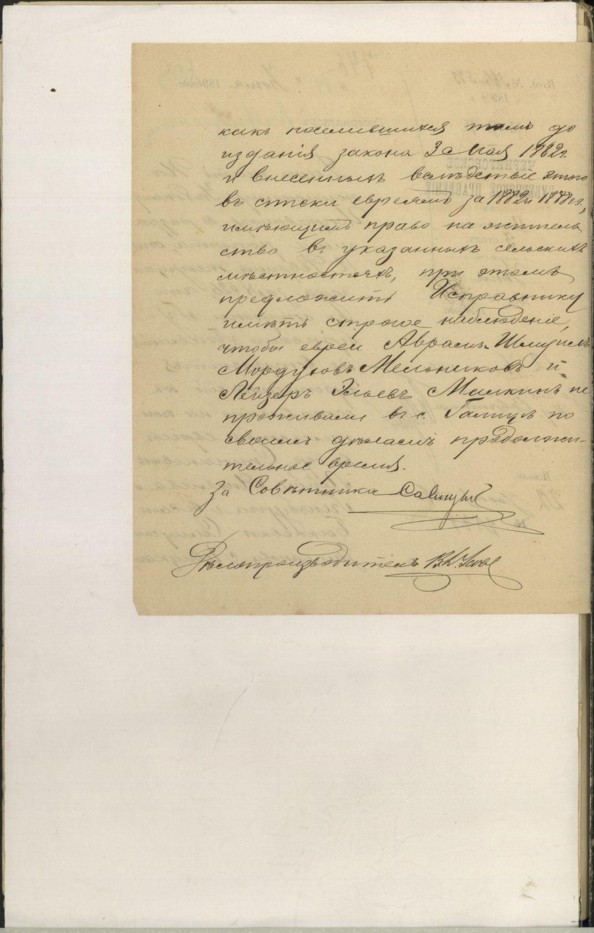 какъ поселившихся тамъ до
изданія закона 3 Мая 1882 г.
и внесенныхъ вслѣдствіе этого
въ списки евреямъ за 1882 и
имѣющимъ право на житель
ство въ указанныхъ сельскихъ
мѣстностяхъ, при этомъ
предложить Исправнику
имѣть строгое наблюденіе,
чтобы евреи Абрамъ Шмуилъ
Мордуховъ Мельниковъ и
Лейзеръ Малкинъ не
проживали въ с. по
своимъ дѣламъ продолжи-
тельное время.
За Совѣтника
Дѣлопроизводитель